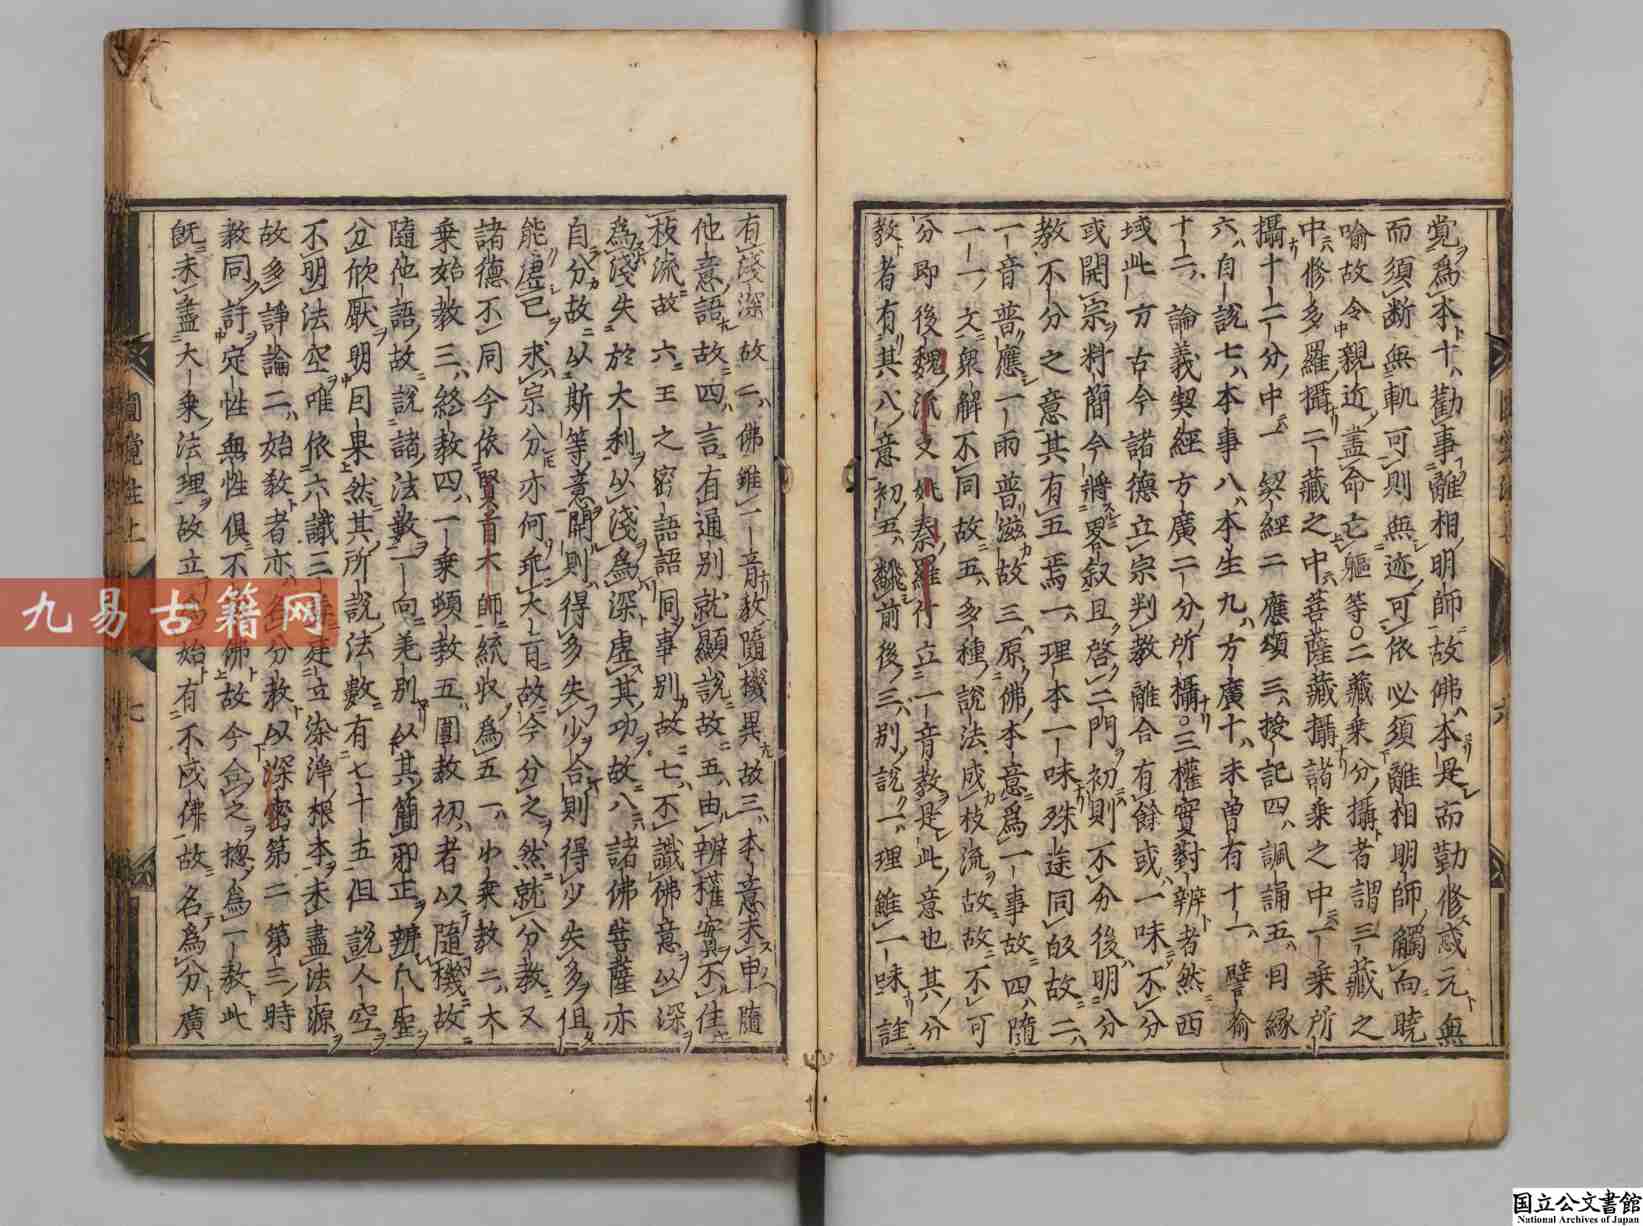 覺爲本十勸事離相明師故佛本是而勤修惑元無
而須断無軌可則無迹可依必須離相明師觸向曉
喻故令親近盡命亡軀等○二藏乗分攝者謂三藏之
中修多羅攝二藏之中菩薩藏攝諸乗之中一乗所
攝十二分中中一契經二應頌三授記四諷誦五因縁
六自說七本事八本生九方廣十未曽有十一譬喻
十二論義契經方廣二分所攝○三權實對辨者然西
域此方古今諸德立宗判教離合有餘或一味不分
或開宗料簡今將畧叙且啓二門初則不分後明分
教不分之意其有五焉一理本一味殊途同故故二
一音普應一雨普滋故三原佛本意爲一事故四隨
一一文衆解不同故五多種說法成枝流故故不可
分即後魏流支姚秦羅什立一音教是此意也其分
教者有其八意初五翻前後三別說一理雖一味詮
有淺深故二佛雖一音教隨機異故三本意未申隨
他意語故四言有通別就顯說故五由辨權實不住
枝流故六王之密語語同事別故七不識佛意以深
爲淺失於大利以淺爲深虛其功故八諸佛菩薩亦
自分故以斯等意開則得多失少合則得少失多但
能虛己求宗分亦何乖大旨故今分之然就分教又
諸德不同今依賢首大師統收爲五一小乗教二大
乗始教三終教四一乗頓教五圓教初者以隨機故
隨他語故說諸法數一向差別以其簡邪正辨凡聖
分欣厭明因果然其所說法數有七十五但說人空
不明法空唯依六識三毒建立染淨根本未盡法源
故多諍論二始教者亦名分教以深密第二第三時
教同許定性無性俱不成佛故今合之總爲一教此
既未盡大乗法理故立爲始有不成佛故名爲分廣
圓覺性上
七
九易古籍网
国立公文書館
National Archives of Japan